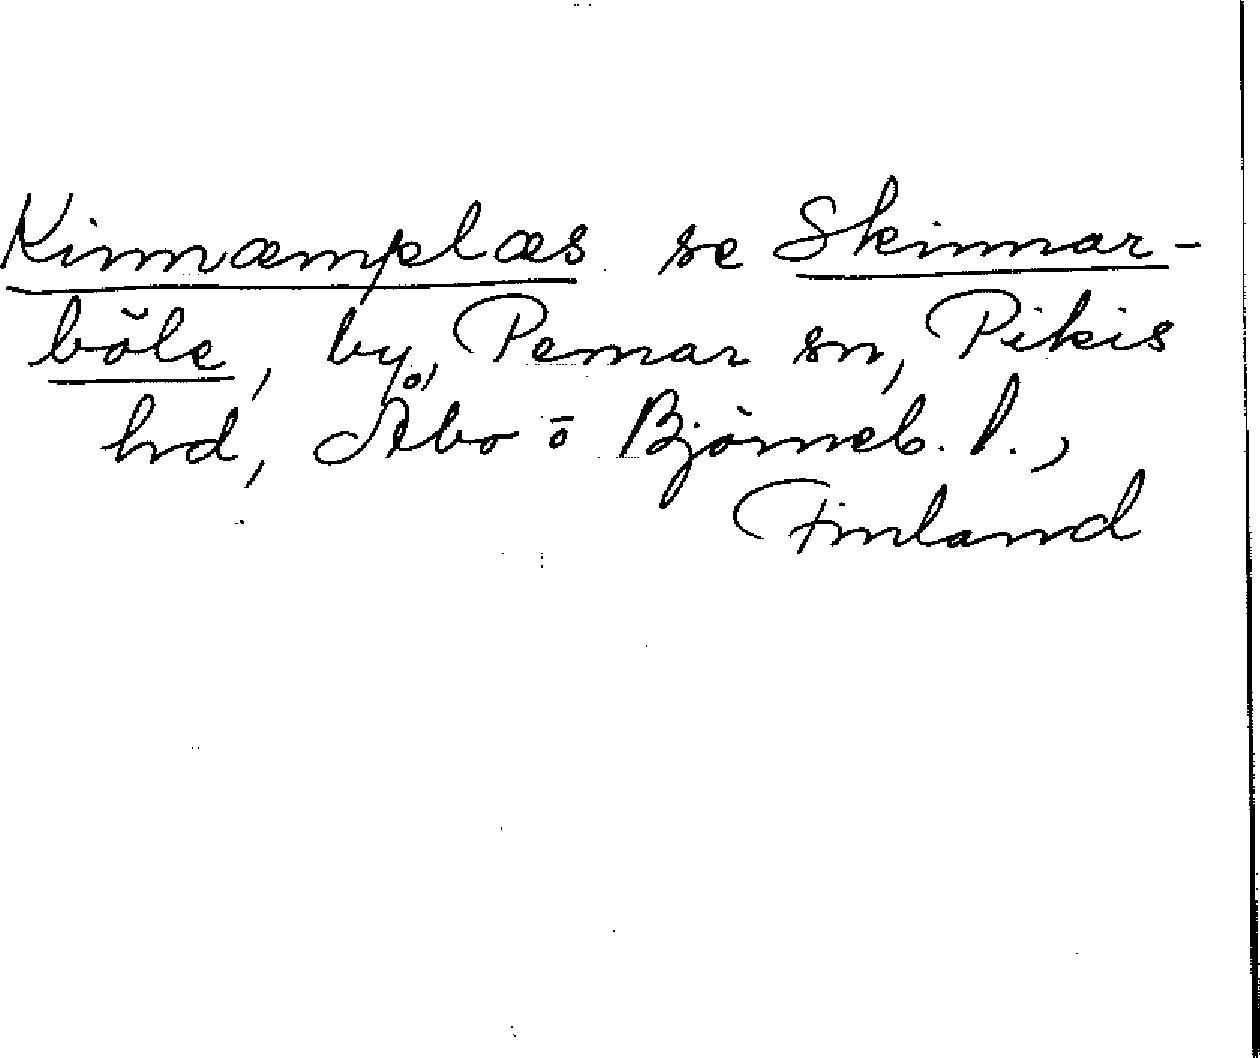 Kinnæmplæs se Skinnar-
böle, by, Pemar sn, Pikis
hd, Åbo o Björneb. l.,
Finland